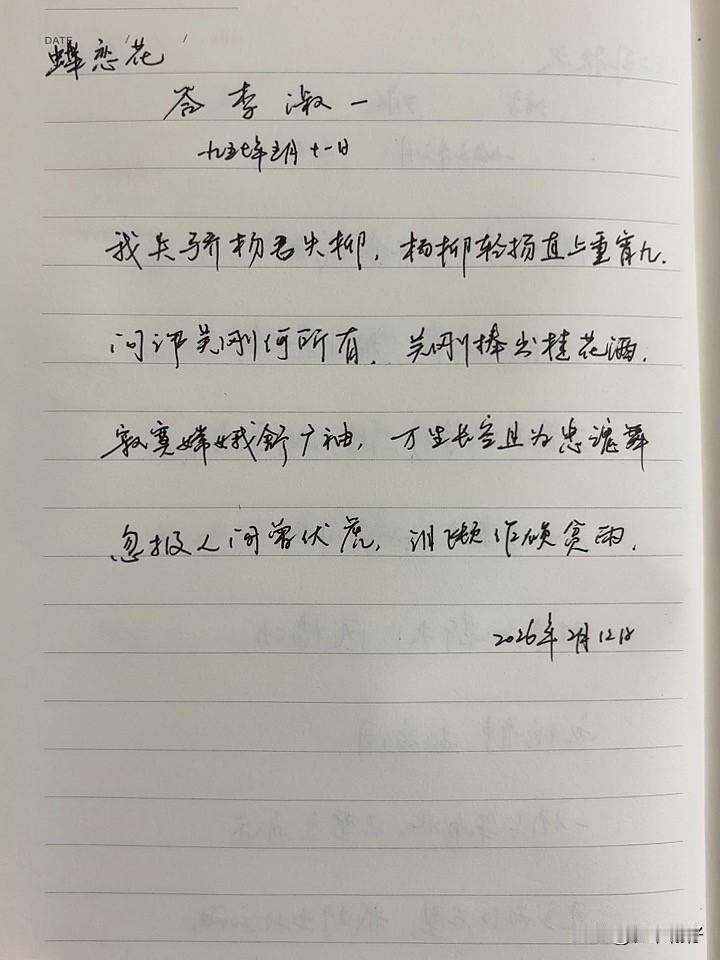 DATE / /
蝶恋花
答李淑一
一九五七年五月十一日
我失骄杨君失柳，杨柳轻扬直上重霄九.
问讯吴刚何所有，吴刚捧出桂花酒.
寂寞嫦娥舒广袖，万里长空且为忠魂舞
忽报人间曾伏虎，泪飞顿作倾盆雨.
2026年2月12日